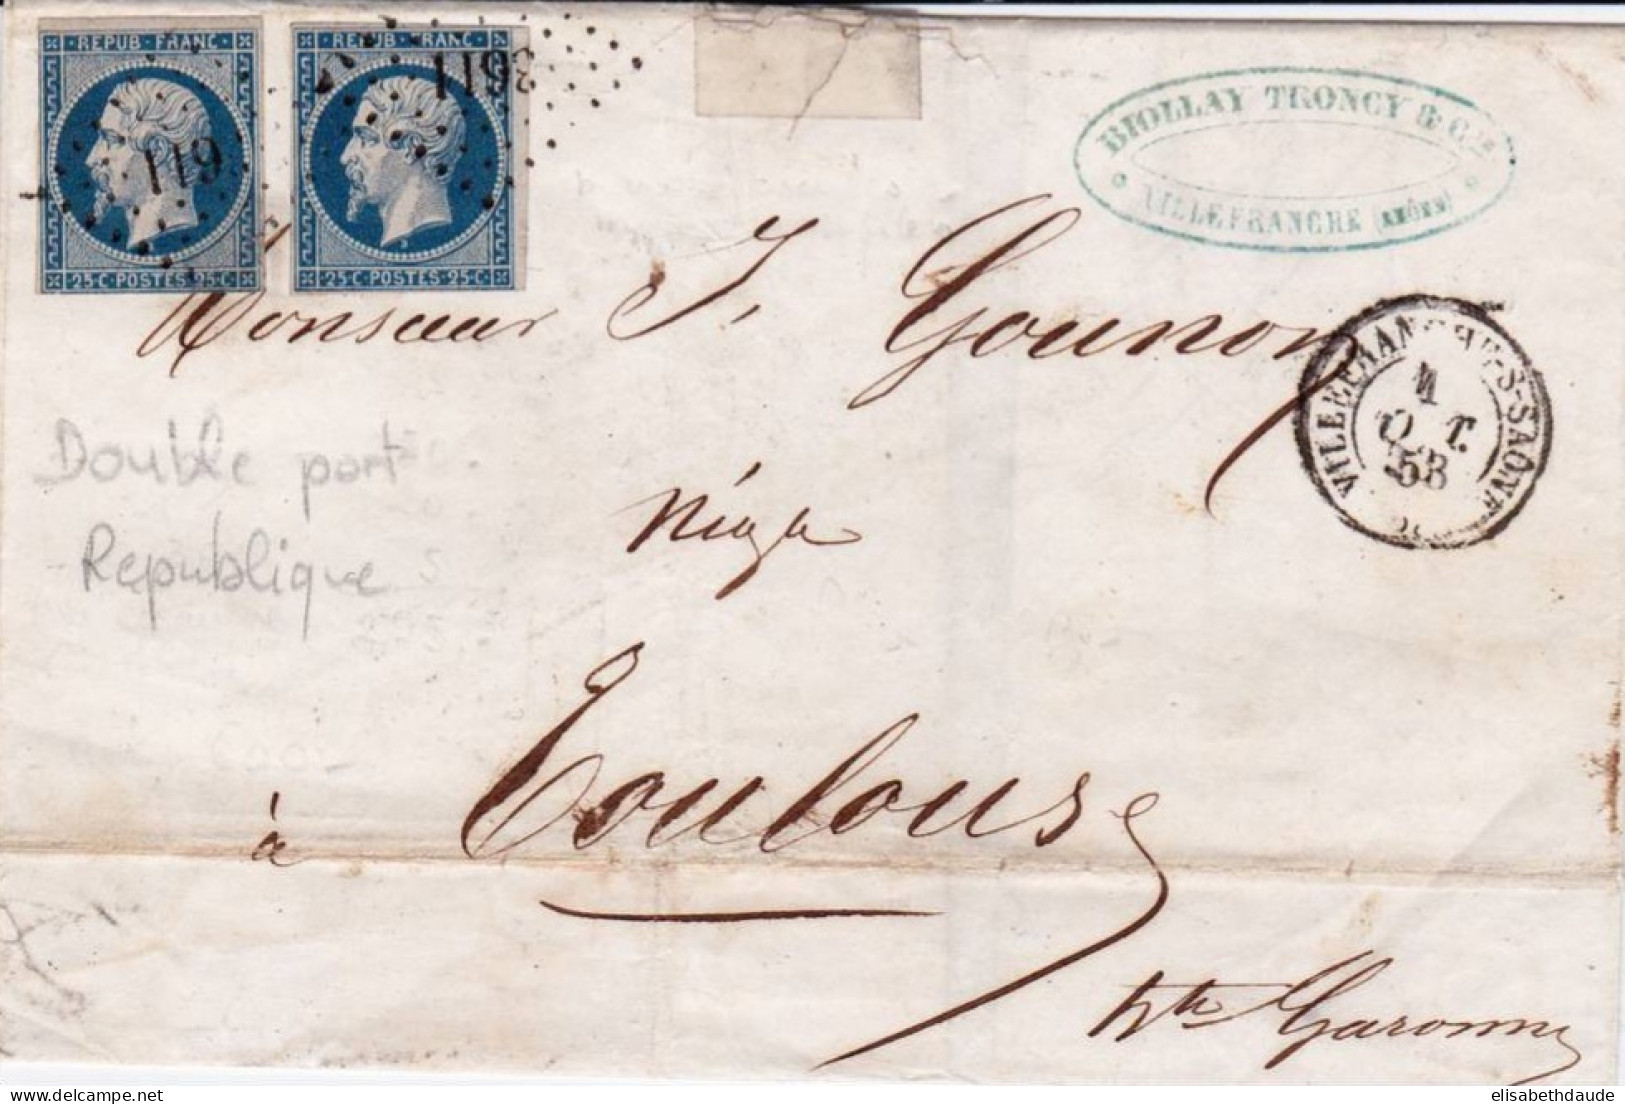 REPUB·FRANC·
25·C·POSTES·25·C·
3611
REPUB·FRANC·
25·C·POSTES·25·C·
3611
BIOLLAY TRONCY & Cie
VILLEFRANCHE (RHÔNE)
VILLEFRANCHE-S-SAÔNE
1
OCT.
53
Monsieur J. Gounon
négt
à Toulouse
Hte Garonne
Double port
Republique
elisabethdaude